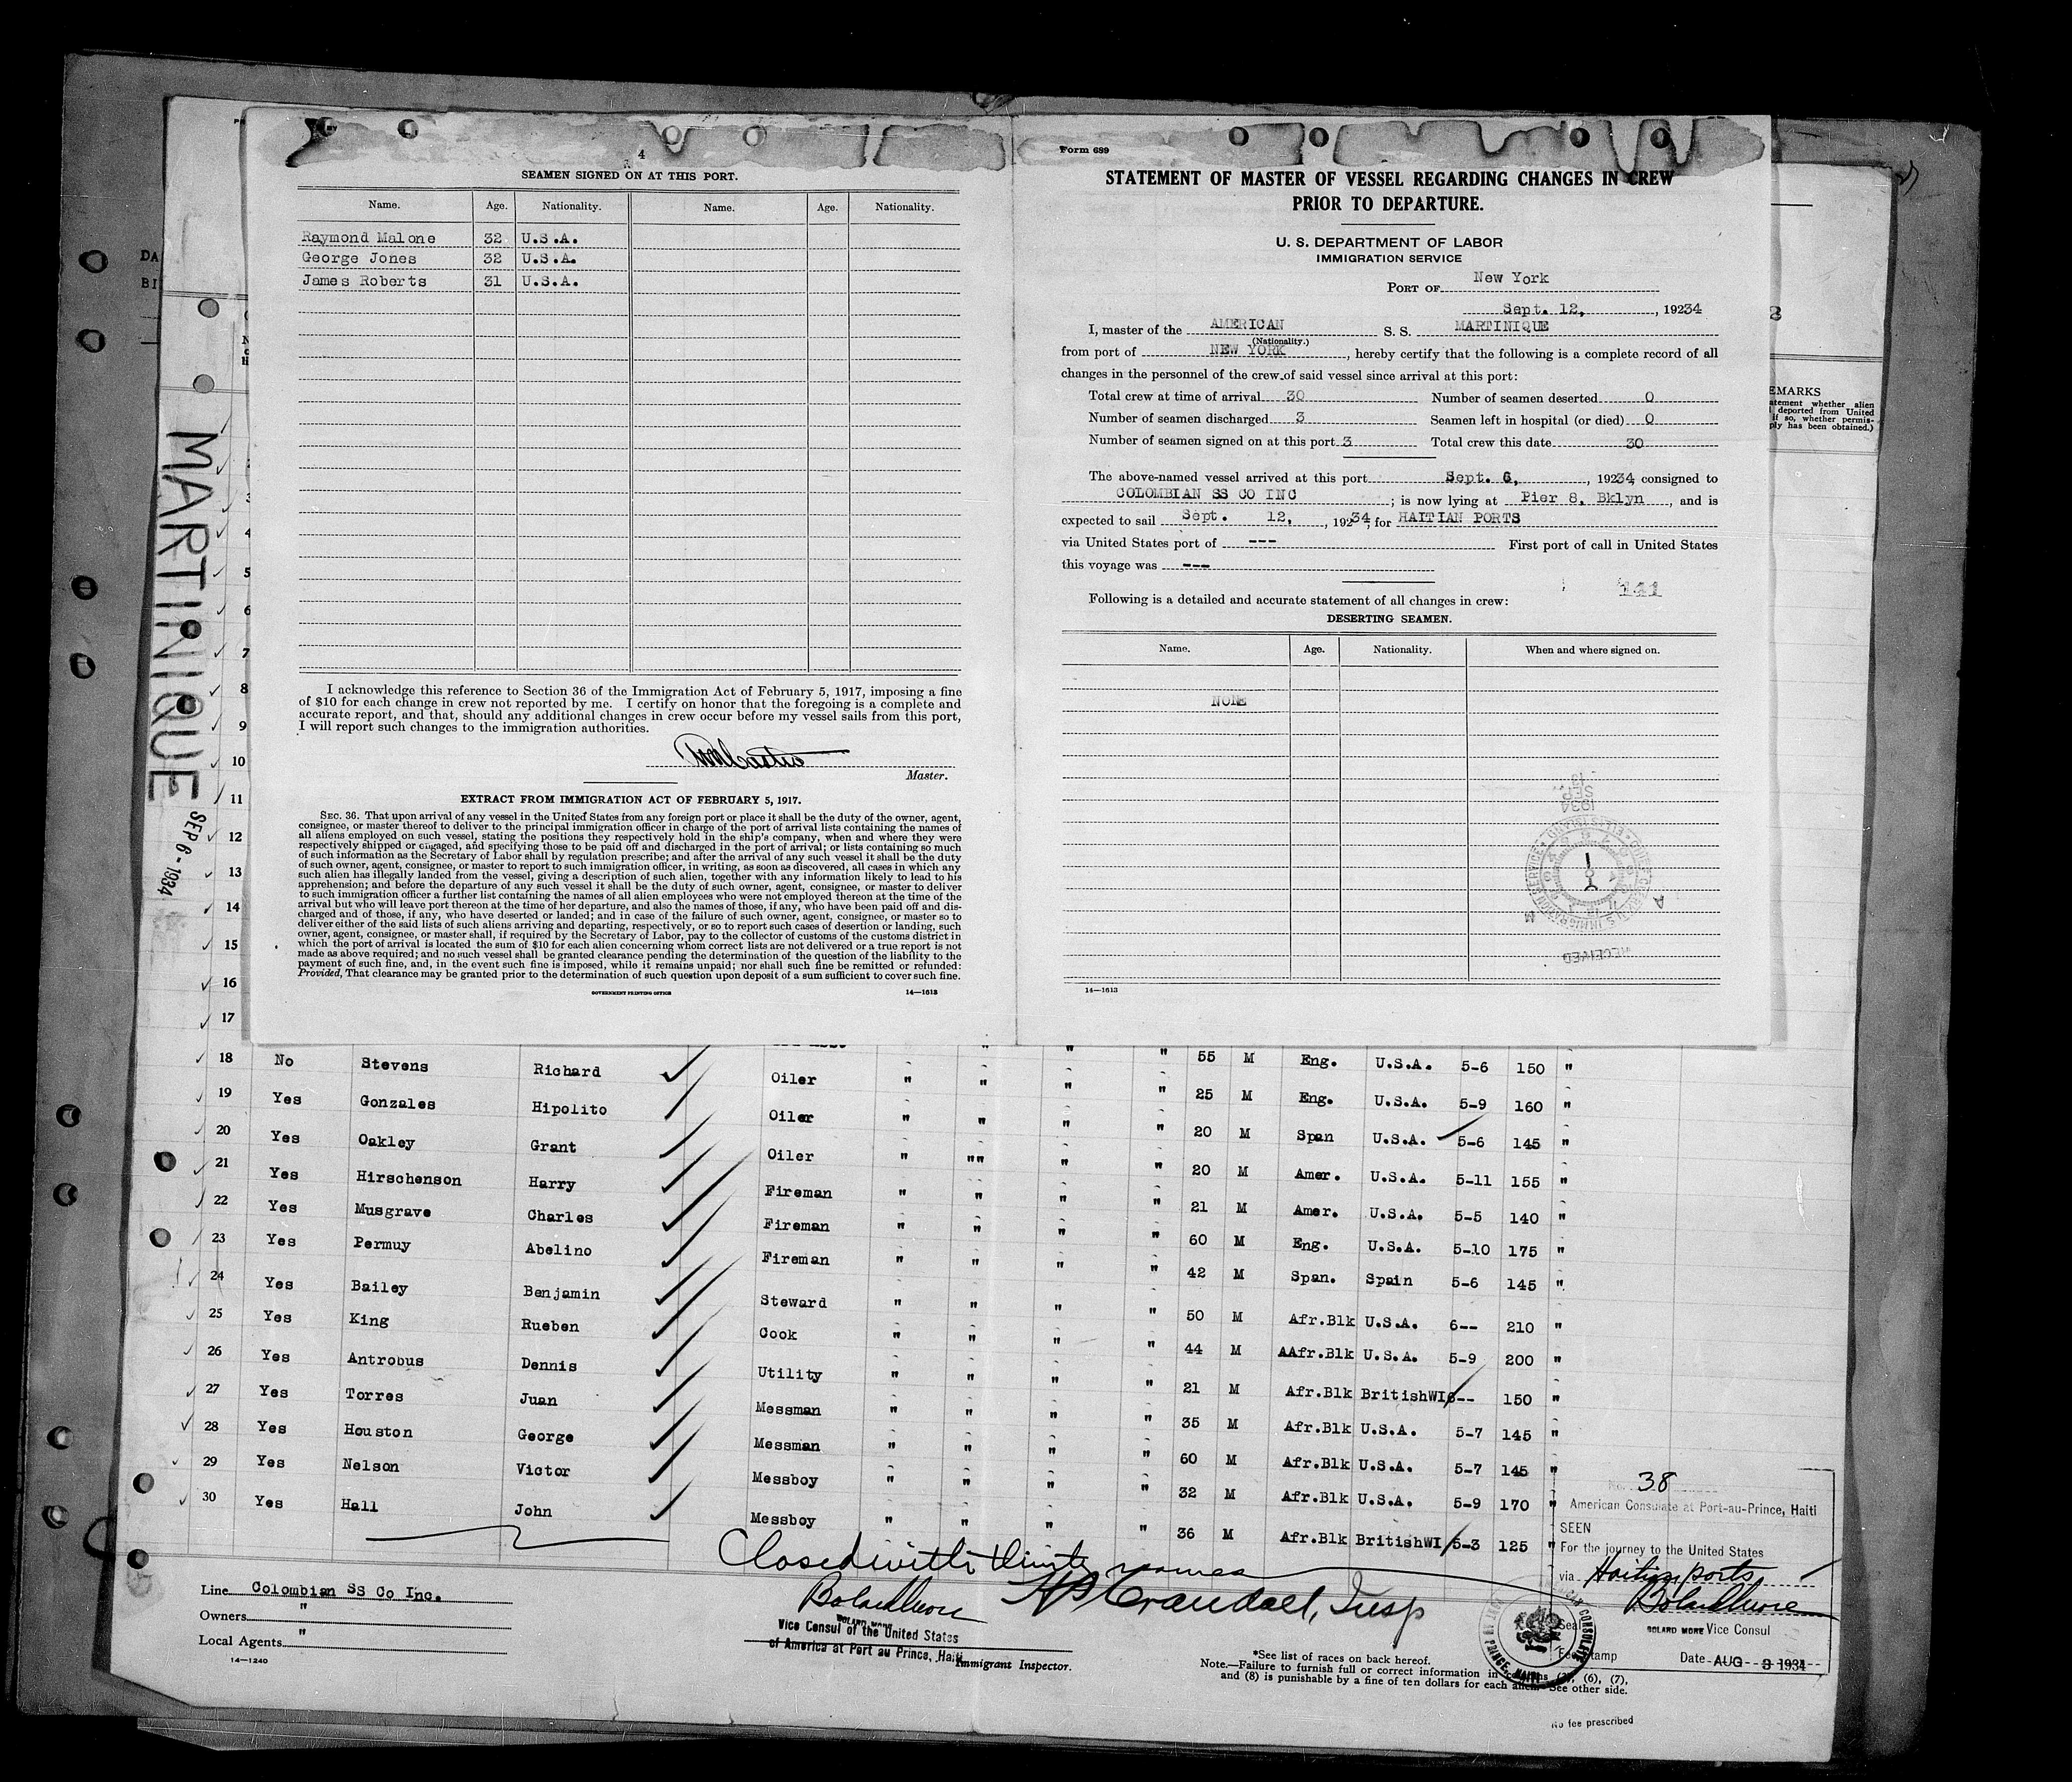 4
SEAMEN SIGNED ON AT THIS PORT.
Name. Age. Nationality. Name. Age. Nationality.
Raymond Malone 32 U.S.A.
George Jones 32 U.S.A.
James Roberts 31 U.S.A.
I acknowledge this reference to Section 36 of the Immigration Act of February 5, 1917, imposing a fine
of $10 for each change in crew not reported by me. I certify on honor that the foregoing is a complete and
accurate report, and that, should any additional changes in crew occur before my vessel sails from this port,
I will report such changes to the immigration authorities.
Master.
EXTRACT FROM IMMIGRATION ACT OF FEBRUARY 5, 1917.
SEC. 36. That upon arrival of any vessel in the United States from any foreign port or place it shall be the duty of the owner, agent,
consignee, or master thereof to deliver to the principal immigration officer in charge of the port of arrival lists containing the names of
all aliens employed on such vessel, stating the positions they respectively hold in the ship's company, when and where they were
respectively shipped or engaged, and specifying those to be paid off and discharged in the port of arrival; or lists containing so much
of such information as the Secretary of Labor shall by regulation prescribe; and after the arrival of any such vessel it shall be the duty
of such owner, agent, consignee, or master to report to such immigration officer, in writing, as soon as discovered, all cases in which any
such alien has illegally landed from the vessel, giving a description of such alien, together with any information likely to lead to his
apprehension; and before the departure of any such vessel it shall be the duty of such owner, agent, consignee, or master to deliver
to such immigration officer a further list containing the names of all alien employees who were not employed thereon at the time of the
arrival but who will leave port thereon at the time of her departure, and also the names of those, if any, who have been paid off and dis-
charged and of those, if any, who have deserted or landed; and in case of the failure of such owner, agent, consignee, or master so to
deliver either of the said lists of such aliens arriving and departing, respectively, or so to report such cases of desertion or landing, such
owner, agent, consignee, or master shall, if required by the Secretary of Labor, pay to the collector of customs of the customs district in
which the port of arrival is located the sum of $10 for each alien concerning whom correct lists are not delivered or a true report is not
made as above required; and no such vessel shall be granted clearance pending the determination of the question of the liability to the
payment of such fine, and, in the event such fine is imposed, while it remains unpaid; nor shall such fine be remitted or refunded:
Provided, That clearance may be granted prior to the determination of such question upon deposit of a sum sufficient to cover such fine.
GOVERNMENT PRINTING OFFICE 14—1613
Form 689
STATEMENT OF MASTER OF VESSEL REGARDING CHANGES IN CREW
PRIOR TO DEPARTURE.
U. S. DEPARTMENT OF LABOR
IMMIGRATION SERVICE
PORT OF New York
Sept. 12, 19234
I, master of the AMERICAN S. S. MARTINIQUE
(Nationality.)
from port of NEW YORK, hereby certify that the following is a complete record of all
changes in the personnel of the crew of said vessel since arrival at this port:
Total crew at time of arrival 30 Number of seamen deserted 0
Number of seamen discharged 3 Seamen left in hospital (or died) 0
Number of seamen signed on at this port 3 Total crew this date 30
The above-named vessel arrived at this port Sept. 6, 19234 consigned to
COLOMBIAN SS CO INC; is now lying at Pier 8, Bklyn, and is
expected to sail Sept. 12, 19234, for HAITIAN PORTS
via United States port of --- First port of call in United States
this voyage was ---
Following is a detailed and accurate statement of all changes in crew:
DESERTING SEAMEN.
Name. Age. Nationality. When and where signed on.
NONE
SEP
1934
RECEIVED
14—1613
EMARKS
atement whether alien
deported from United
if so, whether permis-
ply has been obtained.)
MARTINIQUE
SEP 6 - 1934
3
4
5
6
7
8
9
10
11
12
13
14
15
16
17
18 No Stevens Richard Oiler " " " " 55 M Eng. U.S.A. 5-6 150 "
19 Yes Gonzales Hipolito Oiler " " " " 25 M Eng. U.S.A. 5-9 160 "
20 Yes Oakley Grant Oiler " "" " " 20 M Span U.S.A. 5-6 145 "
21 Yes Hirschenson Harry Fireman " " " " 20 M Amer. U.S.A. 5-11 155 "
22 Yes Musgrave Charles Fireman " " " " 21 M Amer. U.S.A. 5-5 140 "
23 Yes Permuy Abelino Fireman " " " " 60 M Eng. U.S.A. 5-10 175 "
24 Yes Bailey Benjamin Steward " " " " 42 M Span. Spain 5-6 145 "
25 Yes King Rueben Cook " " " " 50 M Afr.Blk U.S.A. 6-- 210 "
26 Yes Antrobus Dennis Utility " " " " 44 M AAfr.Blk U.S.A. 5-9 200 "
27 Yes Torres Juan Messman " " " " 21 M Afr.Blk BritishWI 6-- 150 "
28 Yes Houston George Messman " " " " 35 M Afr.Blk U.S.A. 5-7 145 "
29 Yes Nelson Victor Messboy " " " " 60 M Afr.Blk U.S.A. 5-7 145 "
30 Yes Hall John Messboy " " " " 32 M Afr.Blk U.S.A. 5-9 170 "
36 M Afr.Blk BritishWI 5-3 125 "
Closed with thirty names
H P Crandall, Insp
Line Colombian SS Co Inc.
Owners "
Local Agents "
14—1240
BOLARD MORE
Vice Consul of the United States
of America at Port au Prince, Haiti
Immigrant Inspector.
*See list of races on back hereof.
Note.—Failure to furnish full or correct information in columns (3), (6), (7),
and (8) is punishable by a fine of ten dollars for each alien. See other side.
No. 38
American Consulate at Port-au-Prince, Haiti
SEEN
For the journey to the United States
via Haitian ports
Bolard More
Seal BOLARD MORE Vice Consul
Fee Stamp Date AUG 3 1934
No fee prescribed